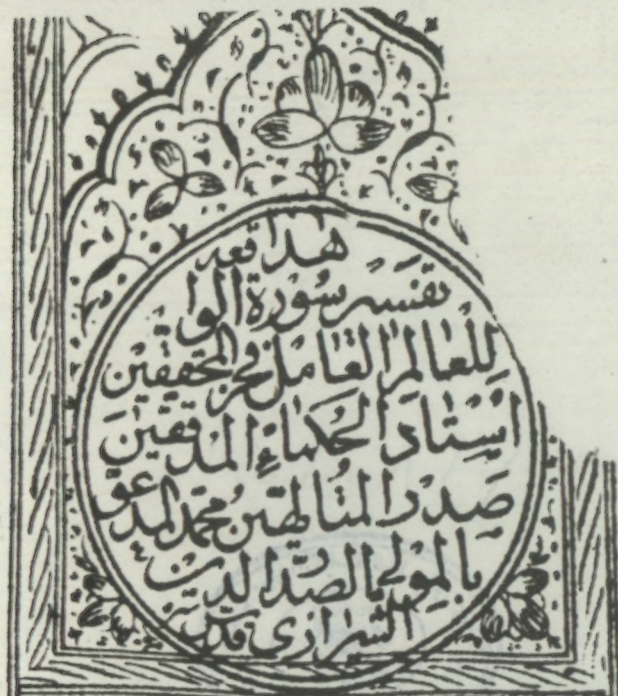 هذا
تفسير سورة الوا
للعالم العامل فخر المحققين
استاد الحكماء المدققين
صدر المتالهين محمد المدعو
بالمولى الصدر الدين
الشيرازي قدس